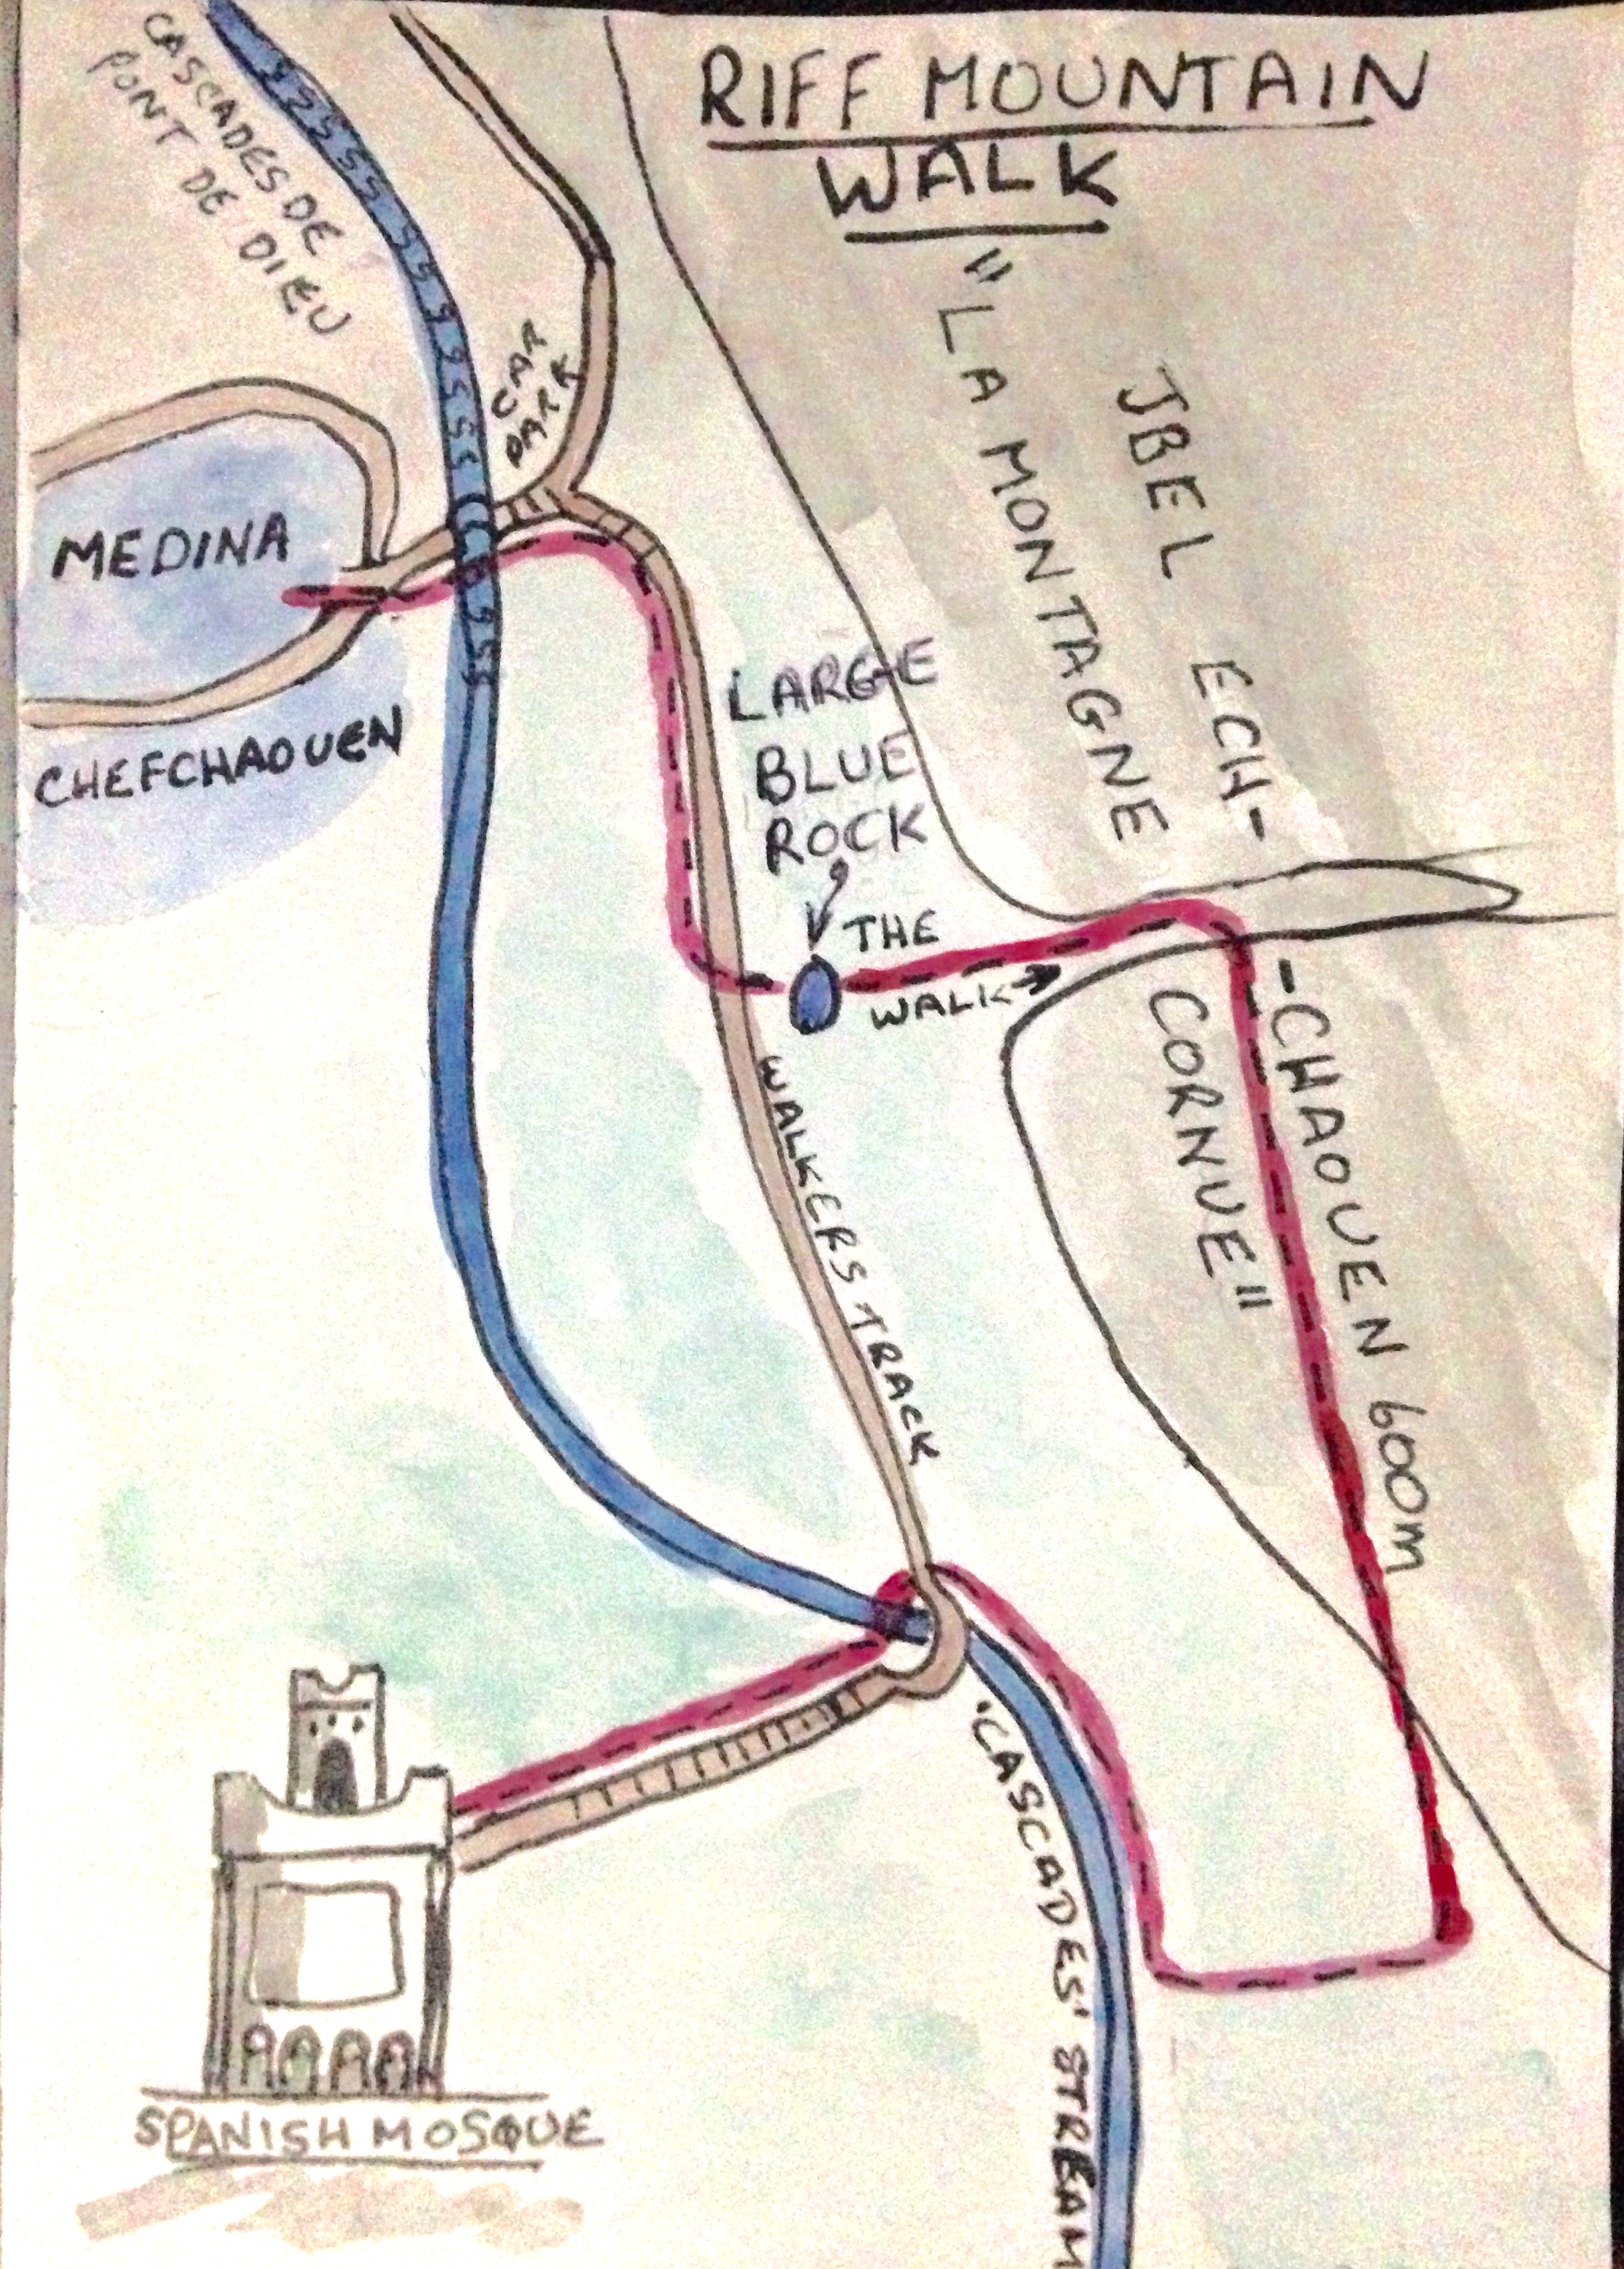 RIFF MOUNTAIN
WALK
CASCADES DE
PONT DE DIEU
CAR
PARK
"LA MONTAGNE
CORNUE"
JBEL ECH-
-CHAOUEN 600m
MEDINA
CHEFCHAOUEN
LARGE
BLUE
ROCK
THE
WALK
WALKERS TRACK
'CASCADES' STREAM
SPANISH MOSQUE